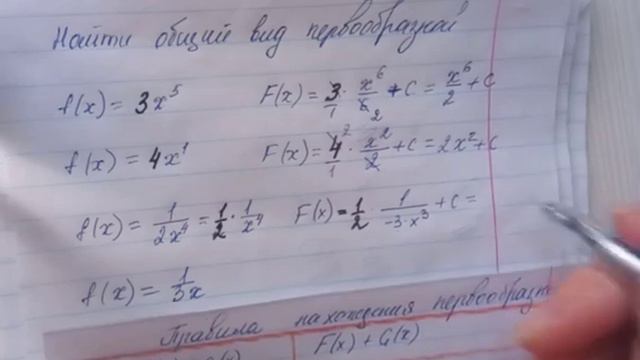 Найти общий вид первообразной
f(x) = 3x⁵ F(x) = 3/1 · x⁶/6₂ + C = x⁶/2 + C
f(x) = 4x¹ F(x) = 4²/1 · x²/2 + C = 2x² + C
f(x) = 1/2x⁴ = 1/2 · 1/x⁴ F(x) = 1/2 · 1/-3·x³ + C =
f(x) = 1/3x
Правила нахождения первообразн
F(x) + G(x)